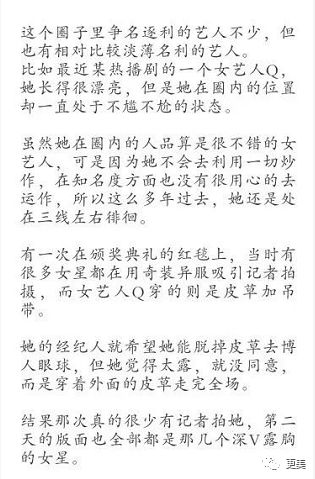 这个圈子里争名逐利的艺人不少，但
也有相对比较淡薄名利的艺人。
比如最近某热播剧的一个女艺人Q，
她长得很漂亮，但是她在圈内的位置
却一直处于不尴不尬的状态。
虽然她在圈内的人品算是很不错的女
艺人，可是因为她不会去利用一切炒
作，在知名度方面也没有很用心的去
运作，所以这么多年过去，她还是处
在三线左右徘徊。
有一次在颁奖典礼的红毯上，当时有
很多女星都在用奇装异服吸引记者拍
摄，而女艺人Q穿的则是皮草加吊
带。
她的经纪人就希望她能脱掉皮草去博
人眼球，但她觉得太露，就没同意，
而是穿着外面的皮草走完全场。
结果那次真的很少有记者拍她，第二
天的版面也全部都是那几个深V露胸
的女星。
更美